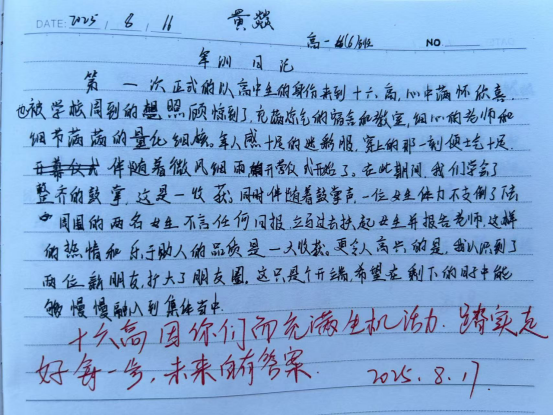 DATE: 2025 / 8 / 16 黄燚
高一 班 NO
军训日记
第一次正式的以高中生的身份来到十六高,心中满怀欣喜
也被学校周到的照顾惊到了,充满凉气的宿舍和教室,细心的老师和
细节满满的量化细核。军人感十足的迷彩服,穿上的那一刻便士气十足.
伴随着微风细雨开学仪式开始了。在此期间,我们学会了
整齐的鼓掌,这是一收获;同时伴随着鼓掌声,一位女生体力不支倒了
周围的两名女生不言任何回报,立马过去扶起女生并报告老师,这样
的热情和乐于助人的品质是一大收获。更令人高兴的是,我认识到了
两位新朋友,扩大了朋友圈,这只是个开端,希望在剩下的时中能
够慢慢融入到集体当中.
十六高因你们而充满生机活力.踏实走
好每一步,未来自有答案.
2025.8.17.